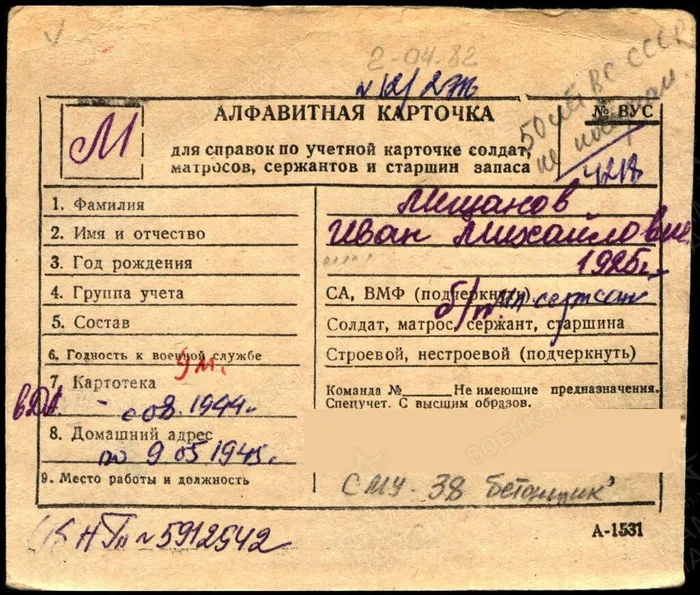 2-04-82
50 лет ВС СССР
не
М
АЛФАВИТНАЯ КАРТОЧКА
№ ВУС
для справок по учетной карточке солдат,
матросов, сержантов и старшин запаса
1. Фамилия
Мищанов
2. Имя и отчество
Иван Михайлович
3. Год рождения
1925г.
4. Группа учета
СА, ВМФ (подчеркнуть).
б/п. мл сержант
5. Состав
Солдат, матрос, сержант, старшина
6. Годность к военной службе
Строевой, нестроевой (подчеркнуть)
7. Картотека
Команда №____ Не имеющие предназначения.
Спецучет. С высшим образов.
с 08.1944г.
8. Домашний адрес
по 9 05 1945г.
9. Место работы и должность
СМУ-38 бетонщик
№ 5912542
А-1531